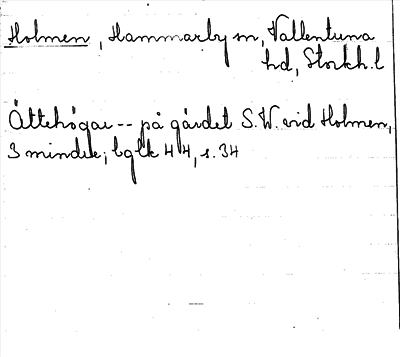 Holmen, Hammarby sn, Vallentuna
hd, Stockh. l
Ättehögar -- på gärdet S.W. vid Holmen,
3 mindre; bglk 44, s. 34